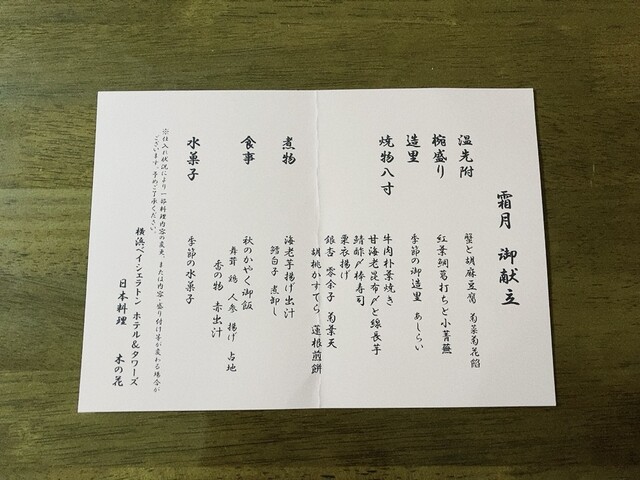 霜月 御献立
温先附
蟹と胡麻豆腐 菊菜菊花餡
椀盛り
紅葉鯛葛打ちと小菁蕪
造里
季節の御造里 あしらい
焼物八寸
牛肉朴葉焼き
甘海老昆布〆と線長芋
鯖酢〆棒寿司
栗衣揚げ
銀杏 零余子 菊葉天
胡桃かすてら 蓮根煎餅
煮物
海老芋揚げ出汁
鱈白子 煮卸し
食事
秋のかやく御飯
舞茸 鶏 人参 揚げ 占地
香の物 赤出汁
水菓子
季節の水菓子
※仕入れ状況により一部料理内容の変更、または内容・盛り付け等が変わる場合が
ございます。予めご了承ください。
横浜ベイシェラトン ホテル&タワーズ
日本料理 木の花